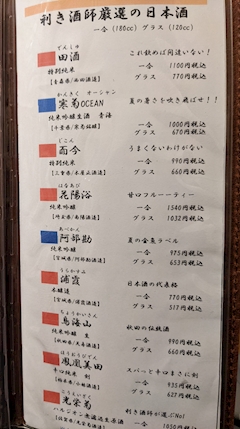 利き酒師厳選の日本酒
一合 (180cc) グラス (120cc)
でんしゅ
田酒
特別純米
【青森県/西田酒造】
これ飲めば間違いない!
一合 1100円税込
グラス 770円税込
かんぎく オーシャン
寒菊OCEAN
純米吟醸生酒 青海
【千葉県/寒菊銘醸】
夏の暑さを吹き飛ばせ!!
一合 1000円税込
グラス 670円税込
じこん
而今
特別純米
【三重県/木屋正酒造】
うまくないわけがない
一合 990円税込
グラス 660円税込
はなあび
花陽浴
純米吟醸
甘口フルーティー
一合 1540円税込
グラス 1032円税込
あべかん
阿部勘
純米吟醸
【宮城県/阿部勘酒造】
夏の金魚ラベル
一合 975円税込
グラス 653円税込
うらかすみ
浦霞
本醸造
【宮城県/浦霞酒造】
日本酒の代表格
一合 770円税込
グラス 517円税込
ちょうかいさん
鳥海山
純米吟醸 生
【秋田県/天寿酒造】
秋田の伝統酒
一合 990円税込
グラス 660円税込
ほうおうびでん
鳳凰美田
辛口純米 剱
【栃木県/小林酒造】
スパッと辛口まさに剣
一合 935円税込
グラス 627円税込
こうえいぎく
光栄菊
ハルジオン無濾過生原酒
【佐賀県/光栄菊酒造】
利き酒師が選ぶNo1
一合 1050円税込